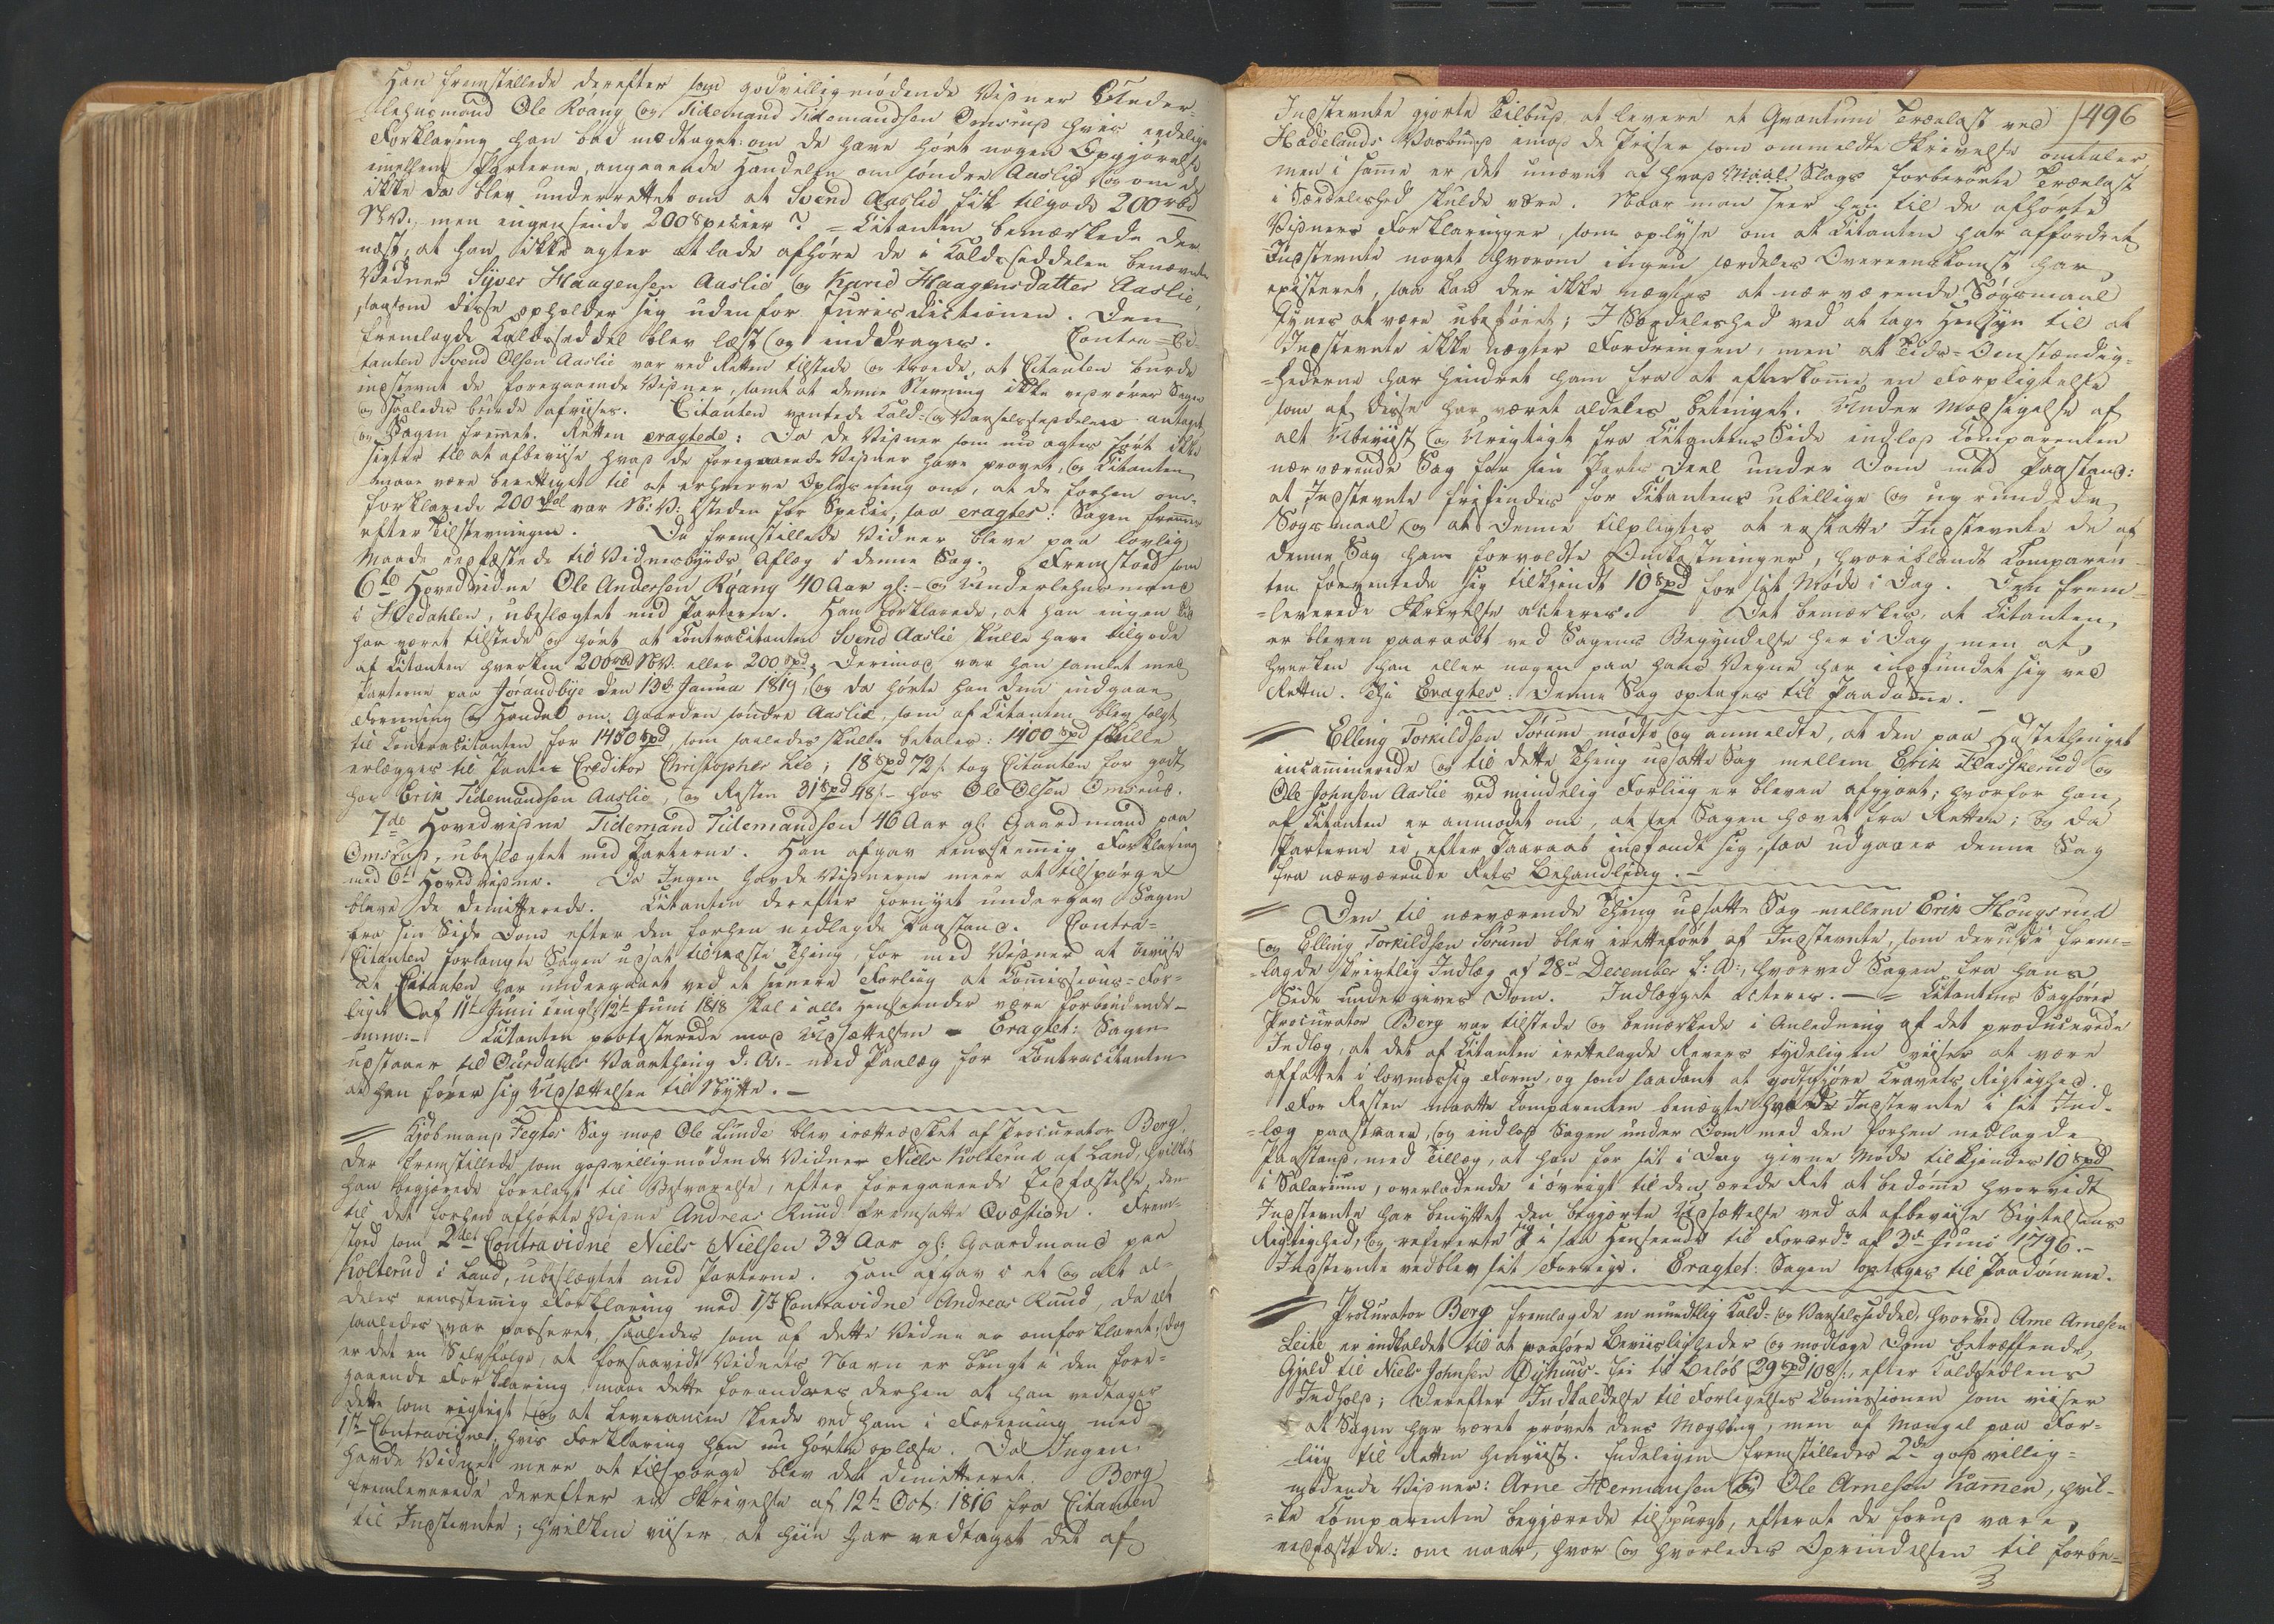 Han fremstillede derefter som godvilligmødende Vidner Under-
Lehnsmand Ole Roang og Tidemand Tidemandsen Omsrud hvis eedelige
Forklaring han bad modtaget: om de have hørt nogen Opgjørelse
imellem Parterne, angaaende Handelen om søndre Aaslie og om de
ikke da blev underrettet om at Svend Aaslie fik tilgode 200 rbd
N.V., men ingensinde 200 Specier? = Citanten bemærkede der-
næst, at han ikke agter at lade afhøre de i Kaldsseddelen benævnte
Vidner Syver Haagensen Aaslie og Karie Haagensdatter Aaslie,
saasom disse opholder sig udenfor Jurisdictionen. Den
fremlagde Kaldsseddel blev læst og inddrages. Contra-Ci-
tanten Svend Olsen Aaslie var ved Retten tilstede og troede, at Citanten burde
indstevnt de foregaaende Vidner, samt at denne Stevning ikke vedrører Sagen
og saaledes burde afvises. Citanten ventede Kald- og Varselsseddelen antaget
og Sagen fremmet. Retten eragtede: Da de Vidner som nu agtes ført ikke
sigter til at afbevise hvad de foregaaende Vidner have provet, og Citanten
maae være berettiget til at erhverve Oplysning om, at de forhen om-
forklarede 200 Dal var N: V: isteden for Specie, saa eragtes: Sagen fremmes
efter Tilstevningen. De fremstillede Vidner bleve paa lovlig
Maade eedfæstede til Vidnesbyrds Aflæg i denne Sag. Fremstoed som
6te Hovedvidne Ole Andersen Roang 40 Aar gl: og Underlehnsmand
i Hedahlen, ubeslægtet med Parterne. Han forklarede, at han ingen Tid
har været tilstede og hørt at Contracitanten Svend Aaslie skulle have tilgode
af Citanten hverken 200 rbd NV. eller 200 Spd; Derimod var han samlet med
Parterne paa Jørandbye den 13de Janua 1819, og da hørte han dem indgaae
Forening og Handel om Gaarden søndre Aaslie, som af Citanten blev solgt
til Contracitanten for 1450 Spd, som saaledes skulle betales: 1400 Spd skulle
erlægges til Pante-Creditor Christopher Lie; 18 Spd 72 s. tog Citanten for godt
hos Erik Tidemandsen Aaslie, og Resten 31 Spd 48 s. hos Ole Olsen Omsrud.
7de Hovedvidne Tidemand Tidemandsen 46 Aar gl: Gaardmand paa
Omsrud, ubeslægtet med Parterne. Han afgav eensstemmig Forklaring
med 6te Hovedvidne. Da Ingen havde Vidnerne mere at tilspørge
bleve de demitterede. Citanten derefter fornyet undergav Sagen
fra sin Side Dom efter den forhen nedlagde Paastand. Contra-
Citanten forlangte Sagen udsat til næste Thing, for med Vidner at bevise
at Citanten har undergaaet ved et senere Forliig at Commissions-For-
liget af 11te Juni 12te Juni 1818 skal i alle Henseender være forbindende
Citanten protesterede mod Udsættelsen - Eragtet: Sagen
udstaaer til Ourdahls Vaarthing d: A: med Paalæg for Contracitanten
at han fører sig Udsættelsen til Nytte. —
Kjøbmand Fegtes Sag mod Ole Lunde blev irætteæsket af Procurator Berg
der fremstillede som godvilligmødende Vidne Niels Kolterud af Land, hvilket
han begjerede forelagt til Besvarelse, efter foregaaende Eedfæstelse, den
til det forhen afhørte Vidne Andreas Ruud fremsatte Qvæstion. Frem-
stoed som 2det Contravidne Niels Nielsen 33 Aar gl: Gaardmand paa
Kolterud i Land, ubeslægtet med Parterne. Han afgav i et og alt al-
deles eensstemmig Forklaring med 1ste Contravidne Andreas Ruud, da alt
saaledes var passeret, saaledes som af dette Vidne er omforklaret; dog
er det en Selvfølge, at forsaavidt Vidnets Navn er brugt i den fore-
gaaende Forklaring, maae dette forandres derhen at han vedtager
dette som rigtigt og at Leverancen skeede ved ham i Forening med
1ste Contravidne, hvis Forklaring han nu hørte oplæse. Da Ingen
havde Vidnet mere at tilspørge blev det dimitteret. Berg
fremleverede derefter en Skrivelse af 12te Oct: 1816 fra Citanten
til Indstevnte; hvilken viser, at hiin har vedtaget det af
496
Indstevnte gjorte Tilbud, at levere et Qvantum Trælast ved
Hadelands Vasbund imod de Priser som ommeldte Skrivelse omtaler
men i samme er det unævnt af hvad Slags forberørte Trælast
i Særdeleshed skulde være. Naar man seer hen til de afhørte
Vidners Forklaringer, som oplyse om at Citanten har affordret
Indstevnte noget hvorom ingen særdeles Overeenskomst har
existeret, saa kan der ikke nægtes at nærværende Søgsmaal
synes at være ubeføiet; I Særdeleshed ved at tage Hensyn til at
Indstevnte ikke nægter Fordringen, men at Tids-Omstændig-
-hederne har hindret ham fra at efterkomme en Forpligtelse
som af disse har været aldeles betinget. Under Modsigelse af
alt Ubeviist og Urigtigt fra Citantens Side indlod Comparenten
nærværende Sag for sin Parts Deel under Dom med Paastand:
at Indstevnte frifindes for Citantens ubillige og ugrundede
Søgsmaal og at Denne tilpligtes at erstatte Indstevnte de af
denne Sag ham forvoldte Omkostninger, hvoriblandt Comparen-
ten forventede sig tilkjendt 10 Spd for sit Møde i Dag. Den frem-
-leverede Skrivelse acteres. Det bemærkes, at Citanten
er bleven paaraabt ved Sagens Begyndelse her i Dag, men at
hverken han eller nogen paa hans Vegne har indfundet sig ved
Retten. Thi Eragtes: Denne Sag optages til Paadømme. —
Elling Torkildsen Sørum mødte og anmeldte, at den paa Høstethinget
incaminerede og til dette Thing udsatte Sag mellem Erik Flaskerud og
Ole Johnsen Aaslie ved mindelig Forliig er bleven afgjort; hvorfor han
af Citanten er anmodet om, at see Sagen hævet fra Retten; og da
Parterne ei, efter Paaraab indfandt sig, saa udgaaer denne Sag
fra nærværende Rets Behandling. —
Den til nærværende Thing udsatte Sag mellem Erik Hougsrud
og Elling Torkildsen Sørum blev iretteført af Indstevnte, som derudi frem-
-lagde skrivtlig Indlæg af 28de December f: A:, hvorved Sagen fra hans
Side undergives Dom. Indlægget acteres. — = Citantens Sagfører
Procurator Berg var tilstede og bemærkede i Anledning af det producerede
Indlæg, at det af Citanten irettelagde Revers tydeligen viiser at være
affattet i lovmæssig Form, og som saadant at godtgjøre Kravets Rigtighed.
For Resten maatte Comparenten benægte hvad Indstevnte i sit Ind-
-læg paastaaer, og indlod Sagen under Dom med den forhen nedlagde
Paastand, med Tillæg, at han for sit i Dag givne Møde tilkjendes 10 Spd
i Salarium, overladende i øvrigt til den ærede Ret at bedømme hvorvidt
Indstevnte har benyttet den begjerte Udsættelse ved at afbeviise Sigtelsens
Rigtighed, og refererte sig i saa Henseende til Forordn af 3de Juni 1796. —
Indstevnte vedblev sit Forrige. Eragtet: Sagen optages til Paadømme.
Procurator Berg fremlagde en mundtlig Kald- og Varselsseddel, hvorved Arne Arnesen
Leite er indkaldet til at paahøre Beviisligheder og modtage Dom betræffende
Gjæld til Niels Johnsen Dyhuus til Beløb 29 Spd 108 s., efter Kaldsedlens
Indhold; Derefter Indkaldelse til Forligelses Comissionen som viiser
at Sagen har været prøvet dens Mægling, men af Mangel paa For-
-liig til Retten henviist. Endeligen fremstilledes 2de godvillig-
mødende Vidner: Arne Hermansen og Ole Arnesen Hamen, hvil-
-ke Comparenten begjærede tilspurgt, efterat de forud vare
eedfæstede: om naar, hvor og hvorledes Oprindelsen til forbe-